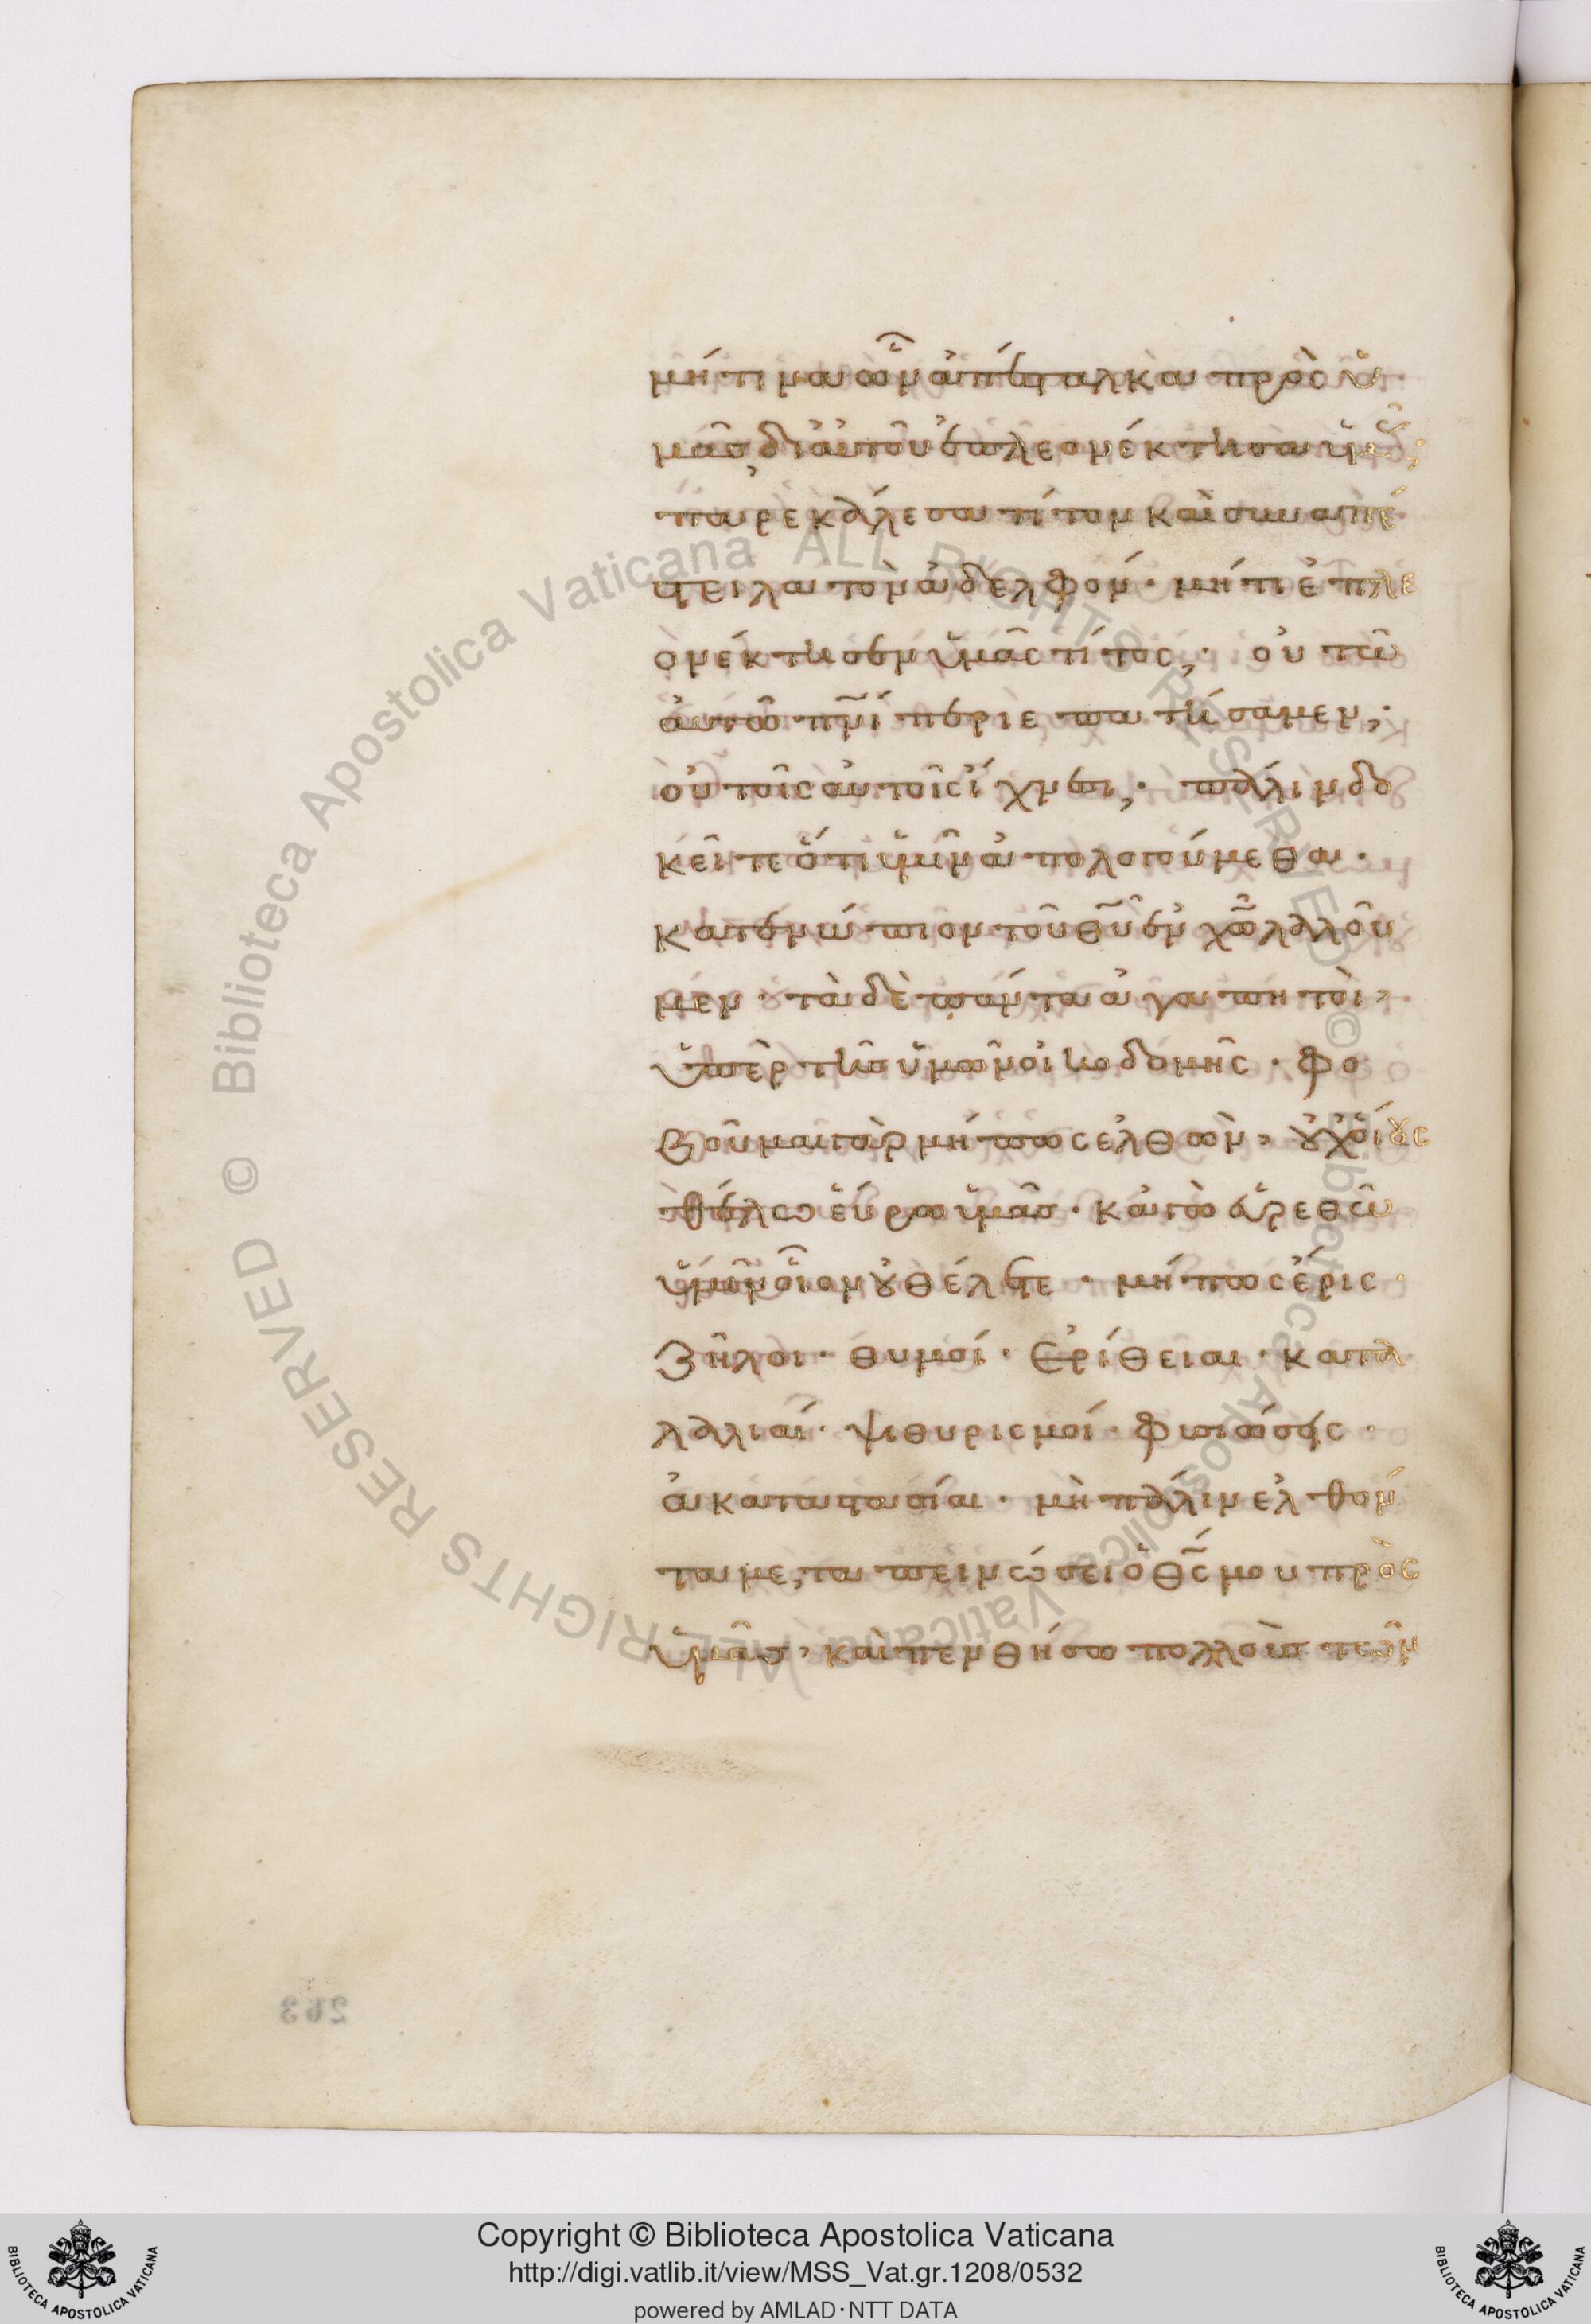 μή τινα ὧν ἀπέσταλκα πρὸς ὑ
μᾶς, δι' αὐτοῦ ἐπλεονέκτησα ὑμᾶς;
παρεκάλεσα τίτον καὶ συναπέ
στειλα τὸν ἀδελφόν· μή τι ἐπλε
ονέκτησεν ὑμᾶς τίτος;· οὐ τῶ
αὐτῶ πνί περιεπατήσαμεν;·
οὐ τοῖς αὐτοῖς ἴχνεσι;· πάλιν δο
κεῖτε ὅτι ὑμῖν ἀπολογούμεθα·
κατενώπιον τοῦ θυ ἐν χω λαλοῦ
μεν· τὰ δὲ πάντα ἀγαπητοὶ,
ὑπὲρ τῆς ὑμῶν οἰκοδομῆς· φο
βοῦμαι γὰρ μήπως ἐλθὼν, οὐχ οἵους
θέλω εὕρω ὑμᾶς· κἀγὼ εὑρεθῶ
ὑμῖν οἷον οὐ θέλετε· μήπως ἔρις
ζῆλοι· θυμοί· ἐρίθειαι· κατα
λαλιαί· ψιθυρισμοί· φυσιώσεις·
ἀκαταστασίαι· μὴ πάλιν ἐλθόν
τα με, ταπεινώσει ὁ θς μου πρὸς
ὑμᾶς, καὶ πενθήσω πολλοὺς τῶν
263
© Biblioteca Apostolica Vaticana ALL RIGHTS RESERVED © Biblioteca Apostolica Vaticana ALL RIGHTS RESERVED
Copyright © Biblioteca Apostolica Vaticana
http://digi.vatlib.it/view/MSS_Vat.gr.1208/0532
powered by AMLAD·NTT DATA
BIBLIOTECA APOSTOLICA VATICANA
BIBLIOTECA APOSTOLICA VATICANA